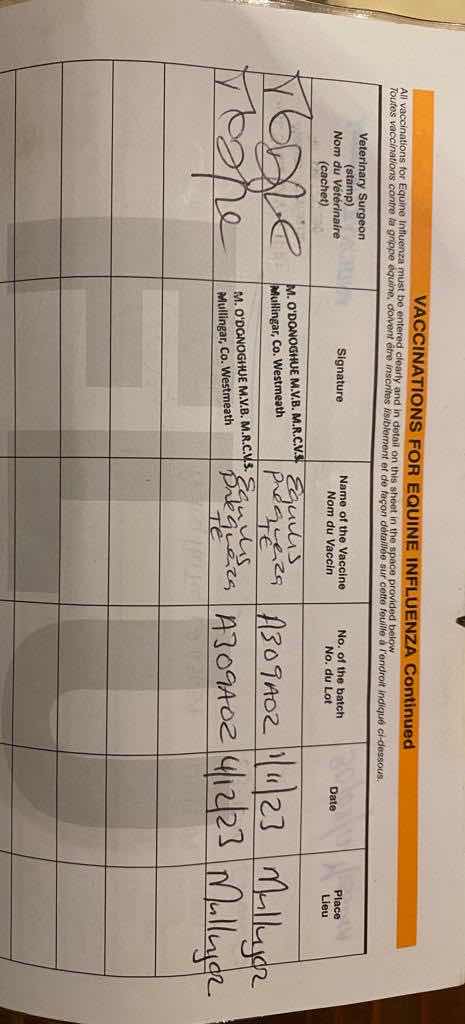 VACCINATIONS FOR EQUINE INFLUENZA Continued
All vaccinations for Equine Influenza must be entered clearly and in detail on this sheet in the space provided below
Toutes vaccinations contre la grippe équine, doivent être inscrites lisiblement et de façon détaillée sur cette feuille à l'endroit indiqué ci-dessous.
Veterinary Surgeon
(stamp)
Nom du Vétérinaire
(cachet)
Signature
Name of the Vaccine
Nom du Vaccin
No. of the batch
No. du Lot
Date
Place
Lieu
M. O'DONOGHUE M.V.B. M.R.C.V.S.
Mullingar, Co. Westmeath
Equilis
Prequenza
TE
A309A02
1/11/23
Mullingar
M. O'DONOGHUE M.V.B. M.R.C.V.S.
Mullingar, Co. Westmeath
Equilis
Prequenza
TE
A309A02
4/12/23
Mullingar